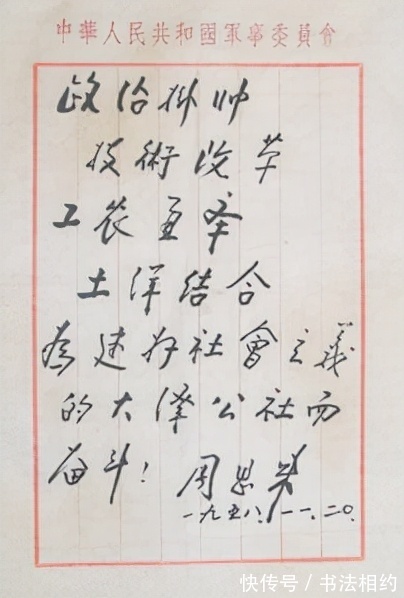 中華人民共和國軍事委員會
政治掛帅
技術改革
工农並举
土洋结合
為建好社會主義
的大澤公社而
奋斗！
周恩來
一九五八、一一、二〇、
快传号 / 书法相约